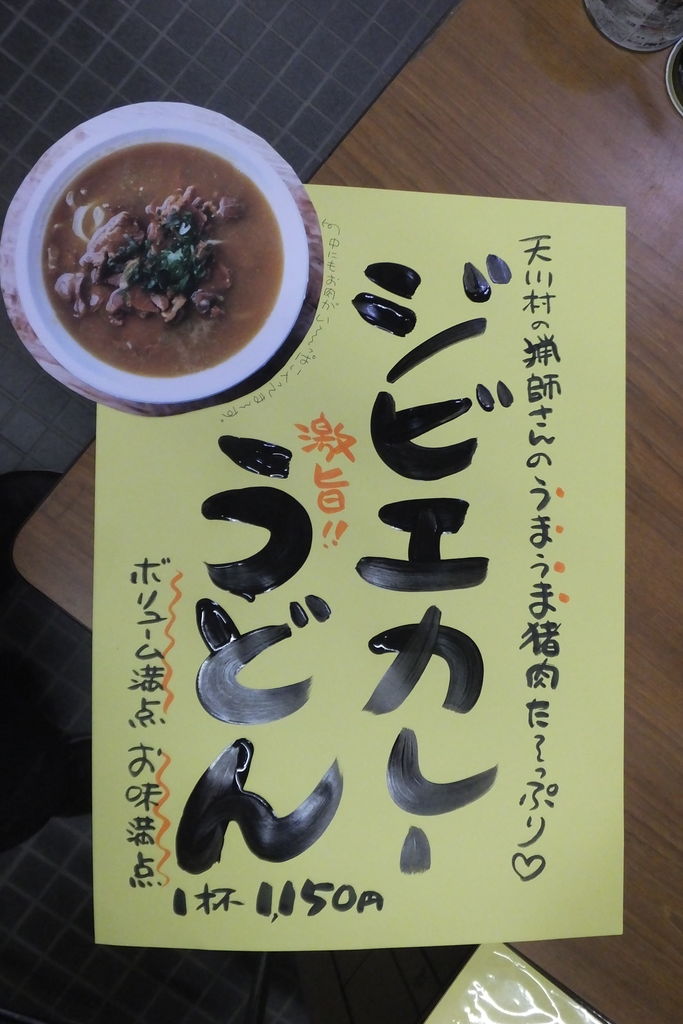 天川村の猟師さんのうまうま猪肉た〜っぷり♡
ジビエカレー
激旨!!
うどん
ボリューム満点 お味満点
1杯 1,150円
の中にもお肉がい〜〜っぱい入ってます。